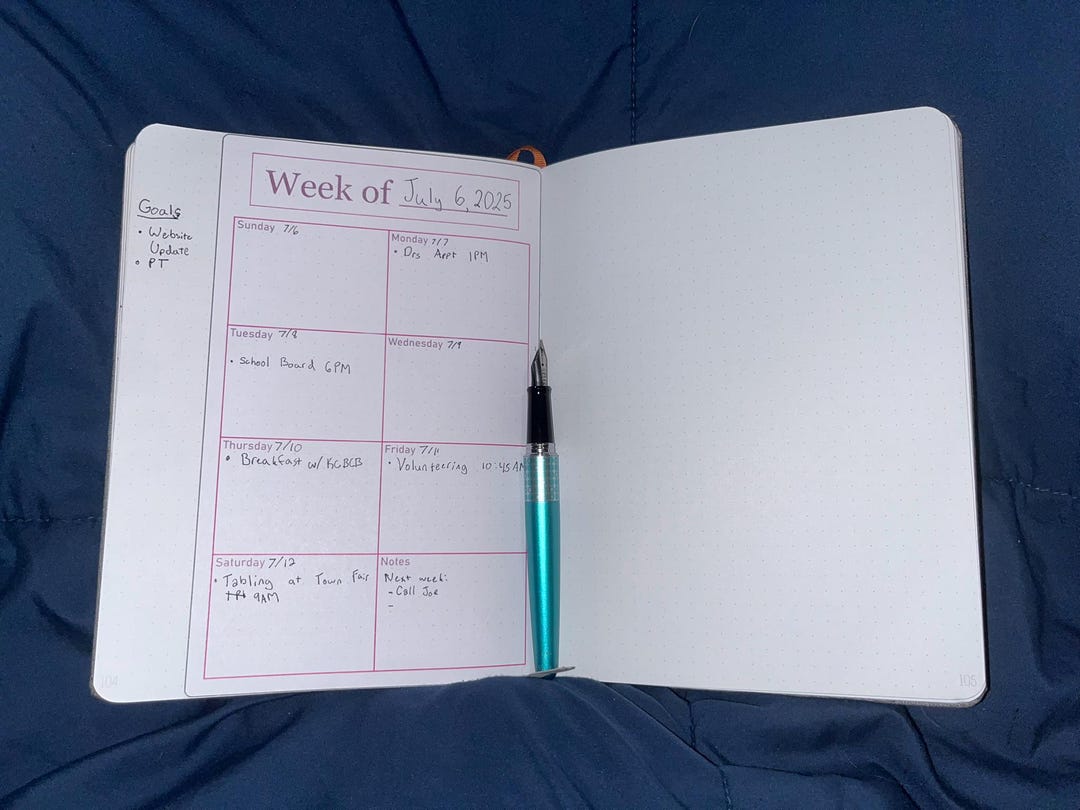 Goals
• Website
Update
• PT
Week of July 6, 2025
Sunday 7/6
Monday 7/7
• Drs Appt 1PM
Tuesday 7/8
• School Board 6PM
Wednesday 7/9
Thursday 7/10
• Breakfast w/ KCBCB
Friday 7/11
• Volunteering 10:45AM
Saturday 7/12
• Tabling at Town Fair
9AM
Notes
Next week:
- Call Joe
-
104
105